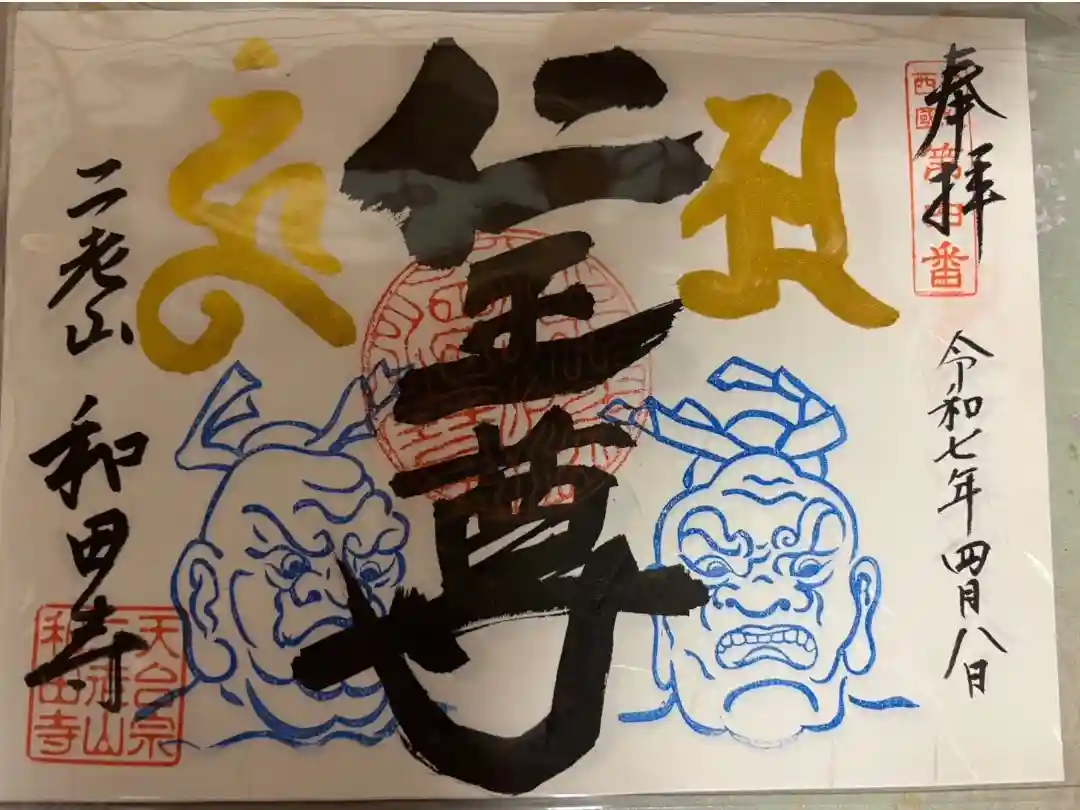 奉拝
西國
番
令和七年四月八日
仁王尊
二老山 和田寺
天台宗
二老山
和田寺